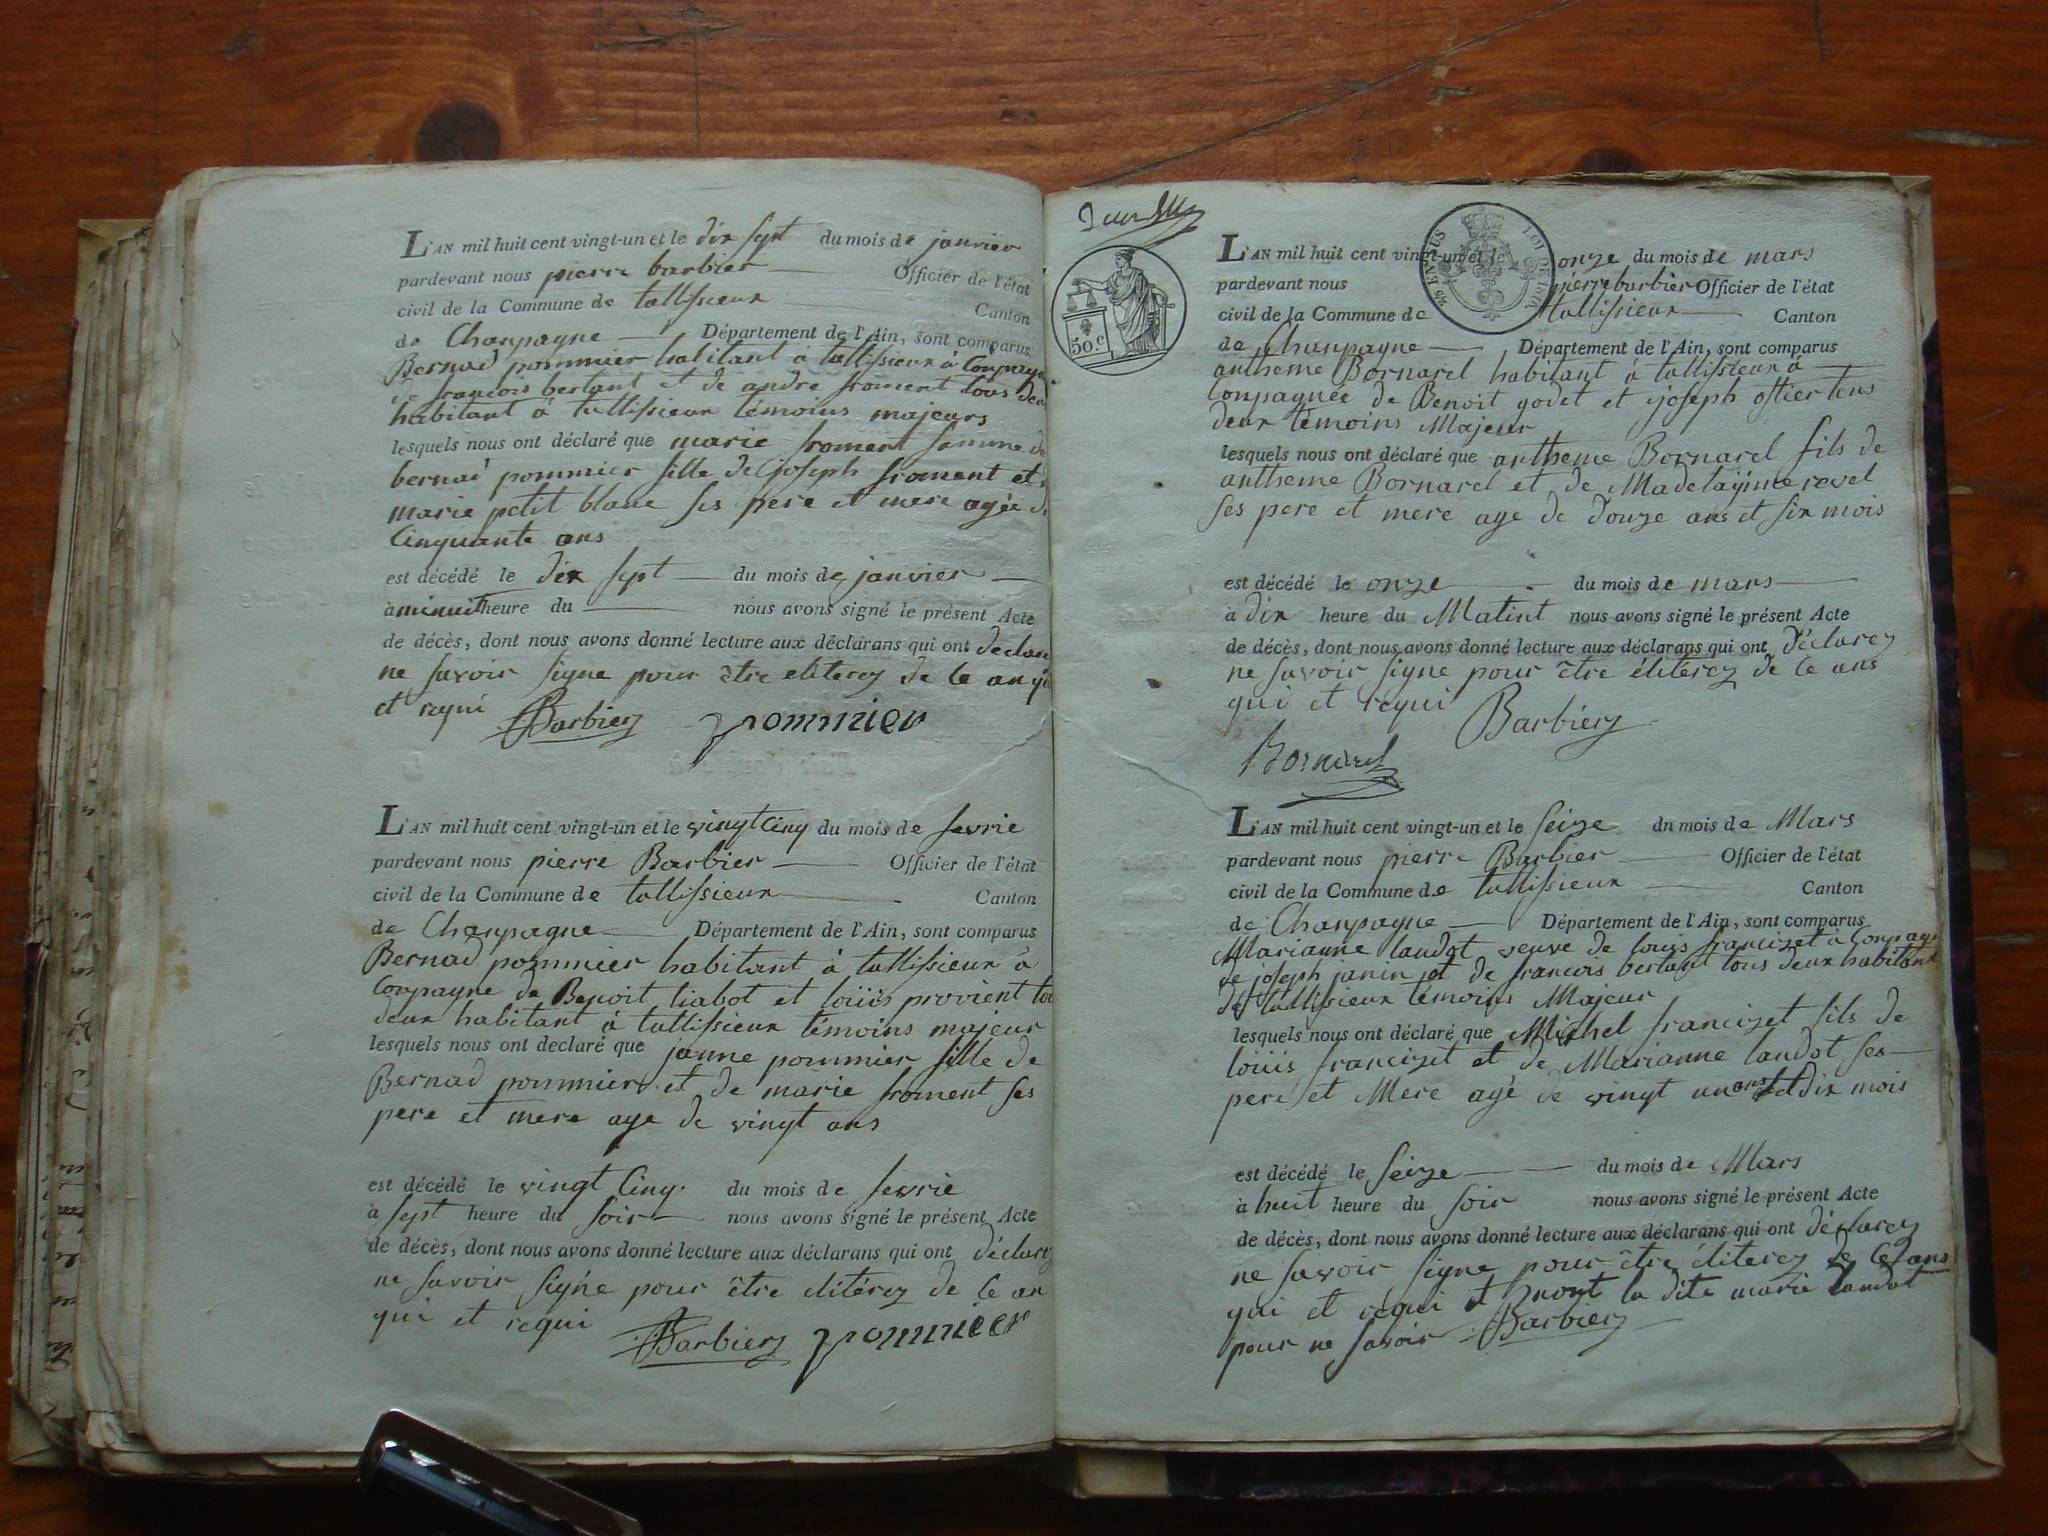 L'AN mil huit cent vingt-un et le dix sept du mois de janvier
pardevant nous pierre barbier Officier de l'état
civil de la Commune de tallissieux Canton
de Chanpagne Département de l'Ain, sont comparus
Bernad pommier habitant à tallissieux à Conpagn
de francois bertant et de andre froment tous deu
habitant à tallissieux témoins majeurs
lesquels nous ont déclaré que marie froment famme de
bernad pommier fille de joseph froment et
marie petit blanc ses pere et mere agée d
Cinquante ans
est décédé le dix sept du mois de janvier
à minuit heure du nous avons signé le présent Acte
de décès, dont nous avons donné lecture aux déclarans qui ont declare
ne savoir signe pour être eliterez de ce an qui
et requi Barbier pommier
L'AN mil huit cent vingt-un et le vingt Cinq du mois de fevrie
pardevant nous pierre Barbier Officier de l'état
civil de la Commune de tallissieux Canton
de Chanpagne Département de l'Ain, sont comparus
Bernad pommier habitant à tallissieux à
Conpagne de Benoit liabot et loüis provient tou
deux habitant à tallissieux témoins majeur
lesquels nous ont declaré que janne pommier fille de
Bernad pommier et de marie froment ses
pere et mere age de vingt ans
est décédé le vingt Cinq du mois de fevrie
à sept heure du soir nous avons signé le présent Acte
de décès, dont nous avons donné lecture aux déclarans qui ont déclarez
ne savoir signé pour être eliterez de ce an
qui et requi Barbier pommier
50.c
L'AN mil huit cent vingt-un et le onze du mois de mars
pardevant nous pierre barbier Officier de l'état
civil de la Commune de tallissieux Canton
de Chanpagne Département de l'Ain, sont comparus
antheme Bornarel habitant à tallissieux à
Conpagnée de Benoit godet et joseph ostier tous
deux témoins Majeur
lesquels nous ont déclaré que antheme Bornarel fils de
antheme Bornarel et de Madelayinne revel
ses pere et mere age de douze ans et six mois
est décédé le onze du mois de mars
à dix heure du Matint nous avons signé le présent Acte
de décès, dont nous avons donné lecture aux déclarans qui ont déclarez
ne savoir signe pour être élitérez de ce ans
qui et requi Barbier
Bornarel
L'AN mil huit cent vingt-un et le seize dn mois de Mars
pardevant nous pierre Barbier Officier de l'état
civil de la Commune de tallissieux Canton
de Chanpagne Département de l'Ain, sont comparus
Marianne landot veuve de louis francizet à Conpagn
de joseph janin et de francois bertant tous deux habitant
de tallissieux témoins Majeur
lesquels nous ont déclaré que Michel francizet fils de
loüis francizet et de Marianne landot ses
pere et Mere agé de vingt un ans et dix mois
est décédé le seize du mois de Mars
à huit heure du soir nous avons signé le présent Acte
de décès, dont nous avons donné lecture aux déclarans qui ont déclarez
ne savoir signe pour être éliterez de ce ans
qui et requi et non la dite marie landot
pour ne savoir Barbier